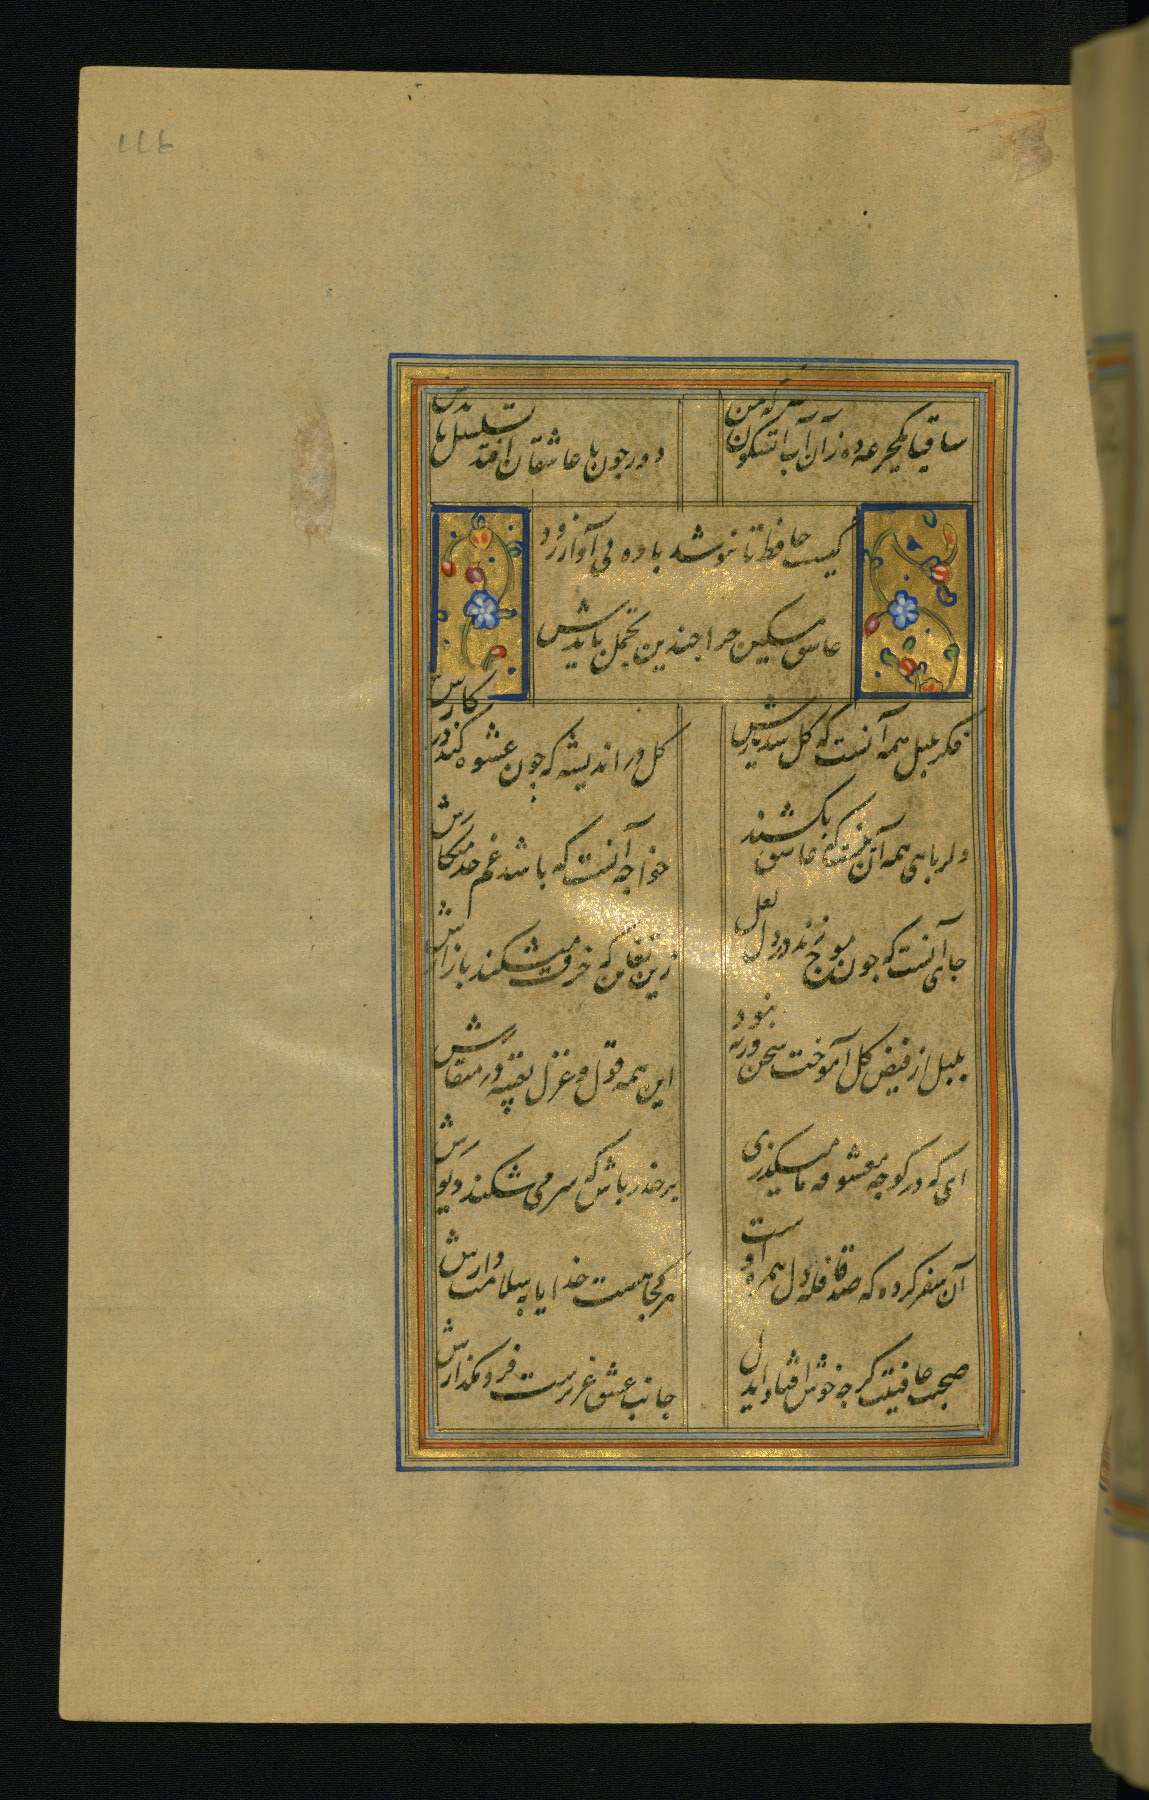 ساقیا یکجرعه ده زآن آب آتشگون که من
دور چون با عاشقان افتد تسلسل بایدش
کیست حافظ تا ننوشد باده بی آواز رود
عاشق مسکین چرا چندین تجمل بایدش
فکر بلبل همه آنست که گل شد یارش
گل در اندیشه که چون عشوه کند در کارش
دلربایی همه آن نیست که عاشق بکشند
خواجه آنست که باشد غم خدمتکارش
جای آنست که خون موج زند در دل لعل
زین تغابن که خزف میشکند بازارش
بلبل از فیض گل آموخت سخن ورنه نبود
این همه قول و غزل تعبیه در منقارش
ای که در کوچه معشوقه ما میگذری
بر حذر باش که سر می شکند دیوارش
آن سفر کرده که صد قافله دل همره اوست
هر کجا هست خدایا بسلامت دارش
صحبت عافیتت گر چه خوش افتاد ایدل
جانب عشق عزیزست فرو مگذارش